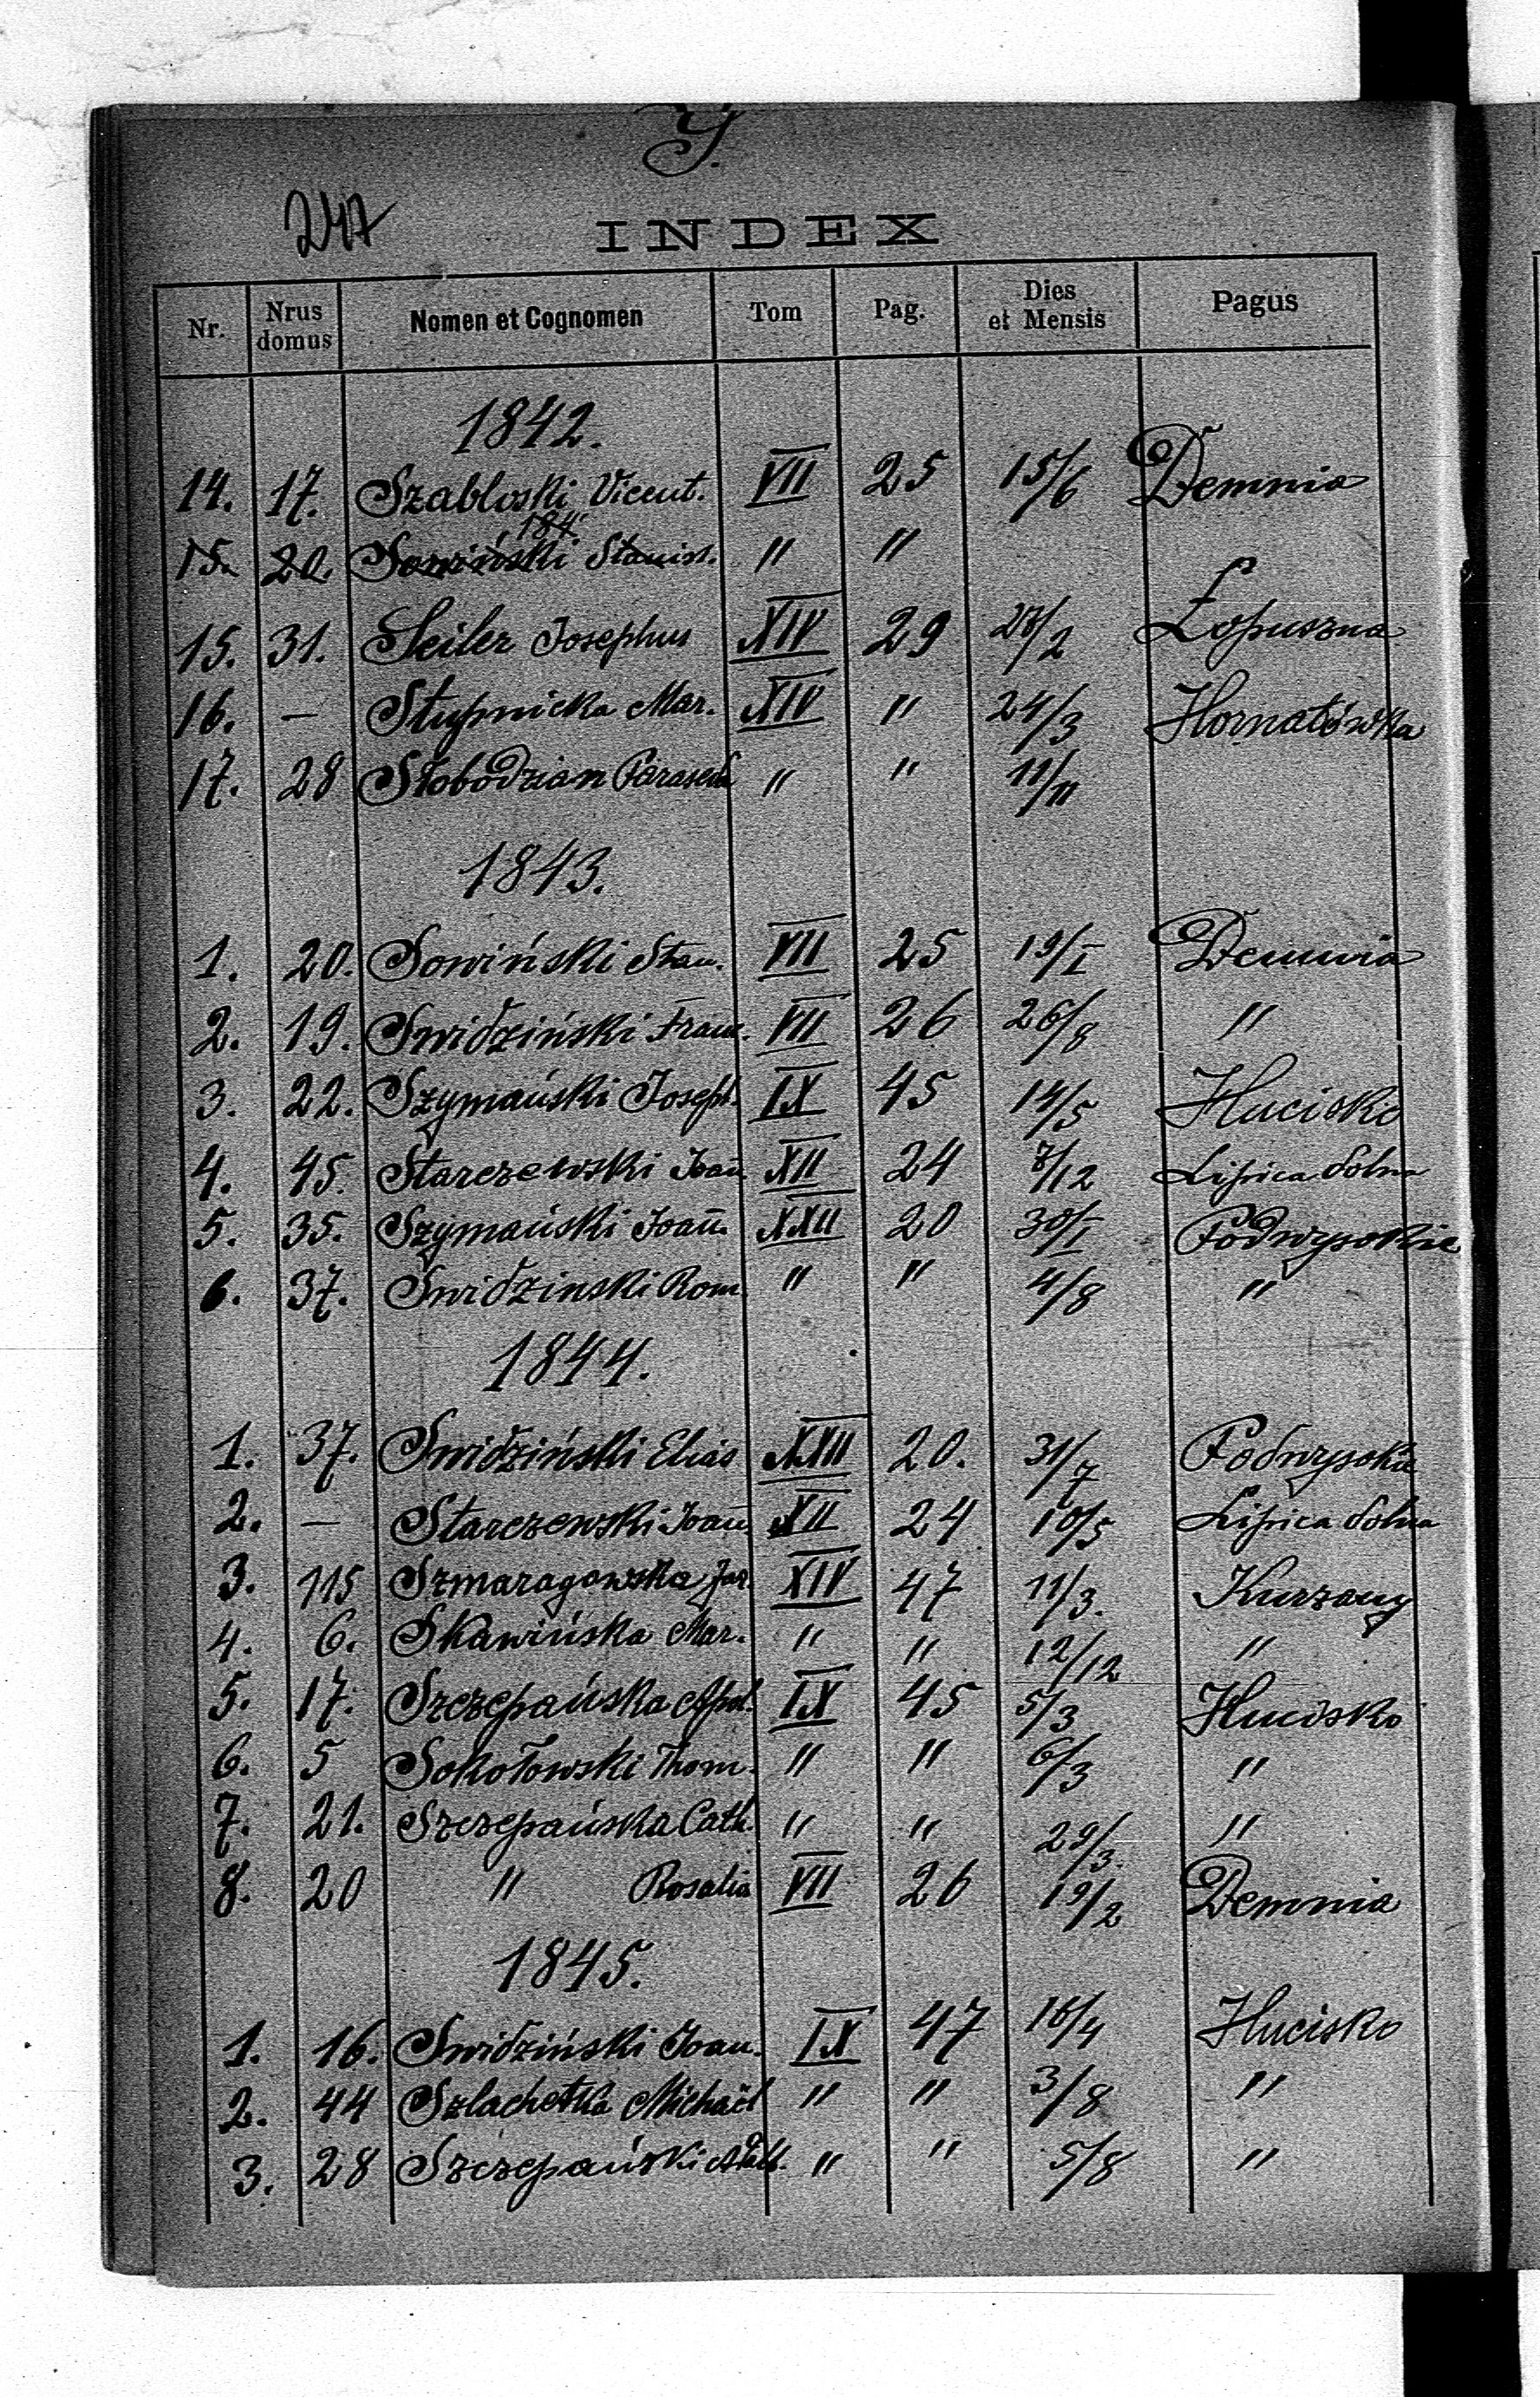 S.
247
INDEX
Nr. Nrus domus Nomen et Cognomen Tom Pag. Dies et Mensis Pagus
1842.
14. 17. Szabloski Vicent. VII 25 15/6 Demnia
184
15. 20. Sowiński Stanisł. " "
15. 31. Seiler Josephus XIV 29 27/2 Łopuszna
16. — Stupnicka Mar. XIV " 24/3 Hornatówka
17. 28 Słobodzian Parasceda " " 11/11
1843.
1. 20. Sowiński Stan. VII 25 19/I Demnia
2. 19. Swidziński Franc. VII 26 26/8 "
3. 22. Szymański Joseph. IX 45 14/5 Hucisko
4. 45. Starczewski Joañ XII 24 7/12 Lipica dolna
5. 35. Szymański Joañ. XXII 20 30/I Podwysokie
6. 37. Swidzinski Rom. " " 4/8 "
1844.
1. 37. Swidziński Elias XXII 20. 31/7 Podwysokie
2. — Starczewski Joañ XII 24 10/5 Lipica dolna
3. 115 Szmaragowska Jos. XIV 47 11/3. Kurzany
4. 6. Skawińska Mar. " " 12/12 "
5. 17. Szczepańska Apol. IX 45 5/3 Hucisko
6. 5 Sokołowski Thom. " " 6/3 "
7. 21. Szczepańska Cath. " " 29/3. "
8. 20 " Rosalia VII 26 19/2 Demnia
1845.
1. 16. Swidziński Joan. IX 47 16/4 Hucisko
2. 44 Szlachetka Michaël " " 3/8 "
3. 28 Szczepański " " 5/8 "